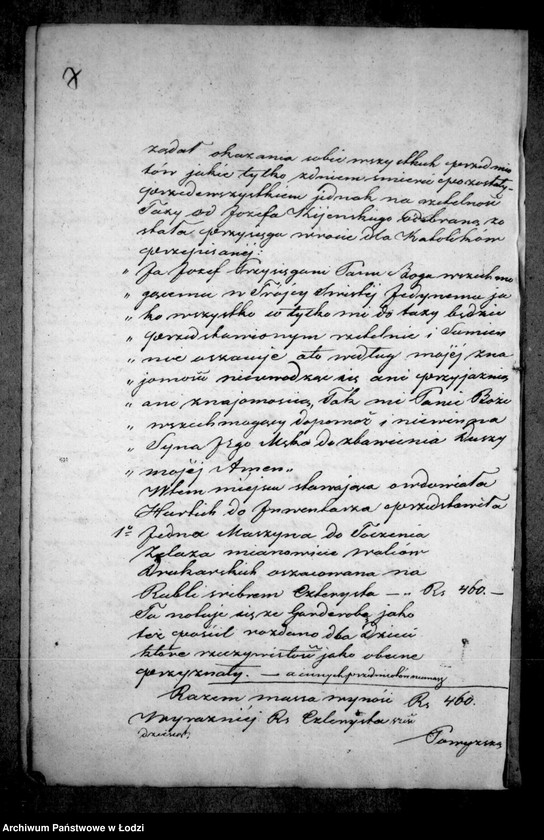 żądał okazania sobie wszystkich przedmio
tów jakie tylko zdniem śmierci pozostały
przedewszystkiem jednak na rzetelność
Taxy od Józefa Kijeńskiego odebraną zo
stała przysięga wrocie dla Katolików
przepisanéj:
„ Ja Józef Przysięgam Panu Bogu wszechmo
„ gącemu w Trójcy Świętej Jedynemu ja
„ ko wszystko co tylko mi do taxy będzie
„ przedstawionym rzetelnie i Sumien
„ nie oszacuję a to według mojéj zna
„ jomości nieuwodząc się ani przyjaźnią
„ ani znajomością, Tak mi Panie Boże
„ wszechmogący dopomóż i niewinna
„ Syna Jego Męko do zbawienia Duszy
„ mojéj Amen„
Wtem miejscu stawająca owdowiała
do Inwentarza przedstawiła
1o Jedna Maszyna do Toczenia
Żelaza mianowicie walców
Drukarskich oszacowana na
Rubli srebrem Czterysta — „ Rs 460.—
Tu notuje się że Garderobę jako
też pościel rozdano dla Dzieci
które rzeczywistość jako obecne
przyznały. — a innych przedmiotów niemasz
Razem massa wynosi Rs 460.
Wyraźniéj Rs Czterysta sześć
dziesiąt;
Powyższą
Archiwum Państwowe w Łodzi